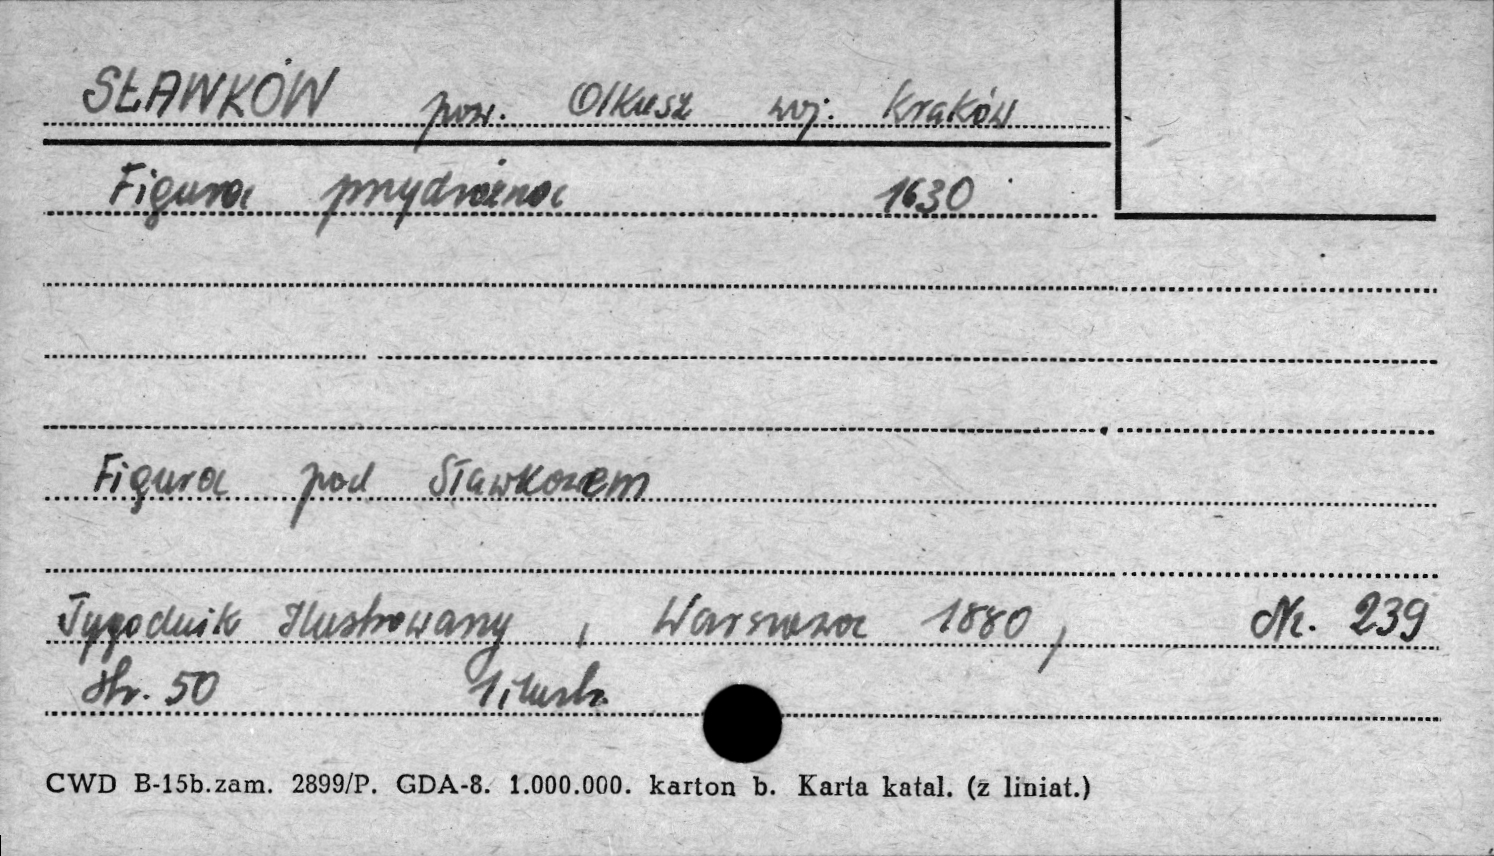 SŁAWKÓW pow. Olkusz woj. Kraków
Figura przydrożna 1630
Figura pod Sławkowem
Tygodnik Ilustrowany, Warszawa 1880, Nr. 239
str. 50 1 ilustr.
CWD B-15b.zam. 2899/P. GDA-8. 1.000.000. karton b. Karta katal. (z liniat.)